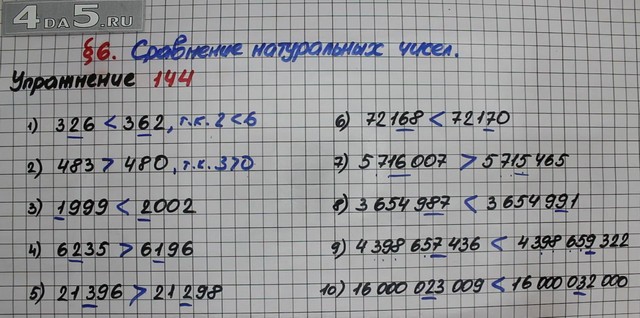 4DA5.RU
§6. Сравнение натуральных чисел.
Упражнение 144
1) 326 < 362, т.к. 2<6
2) 483 > 480, т.к. 3>0
3) 1999 < 2002
4) 6235 > 6196
5) 21396 > 21298
6) 72168 < 72170
7) 5 716 007 > 5 715 465
8) 3 654 987 < 3 654 991
9) 4 398 657 436 < 4 398 659 322
10) 16 000 023 009 < 16 000 032 000